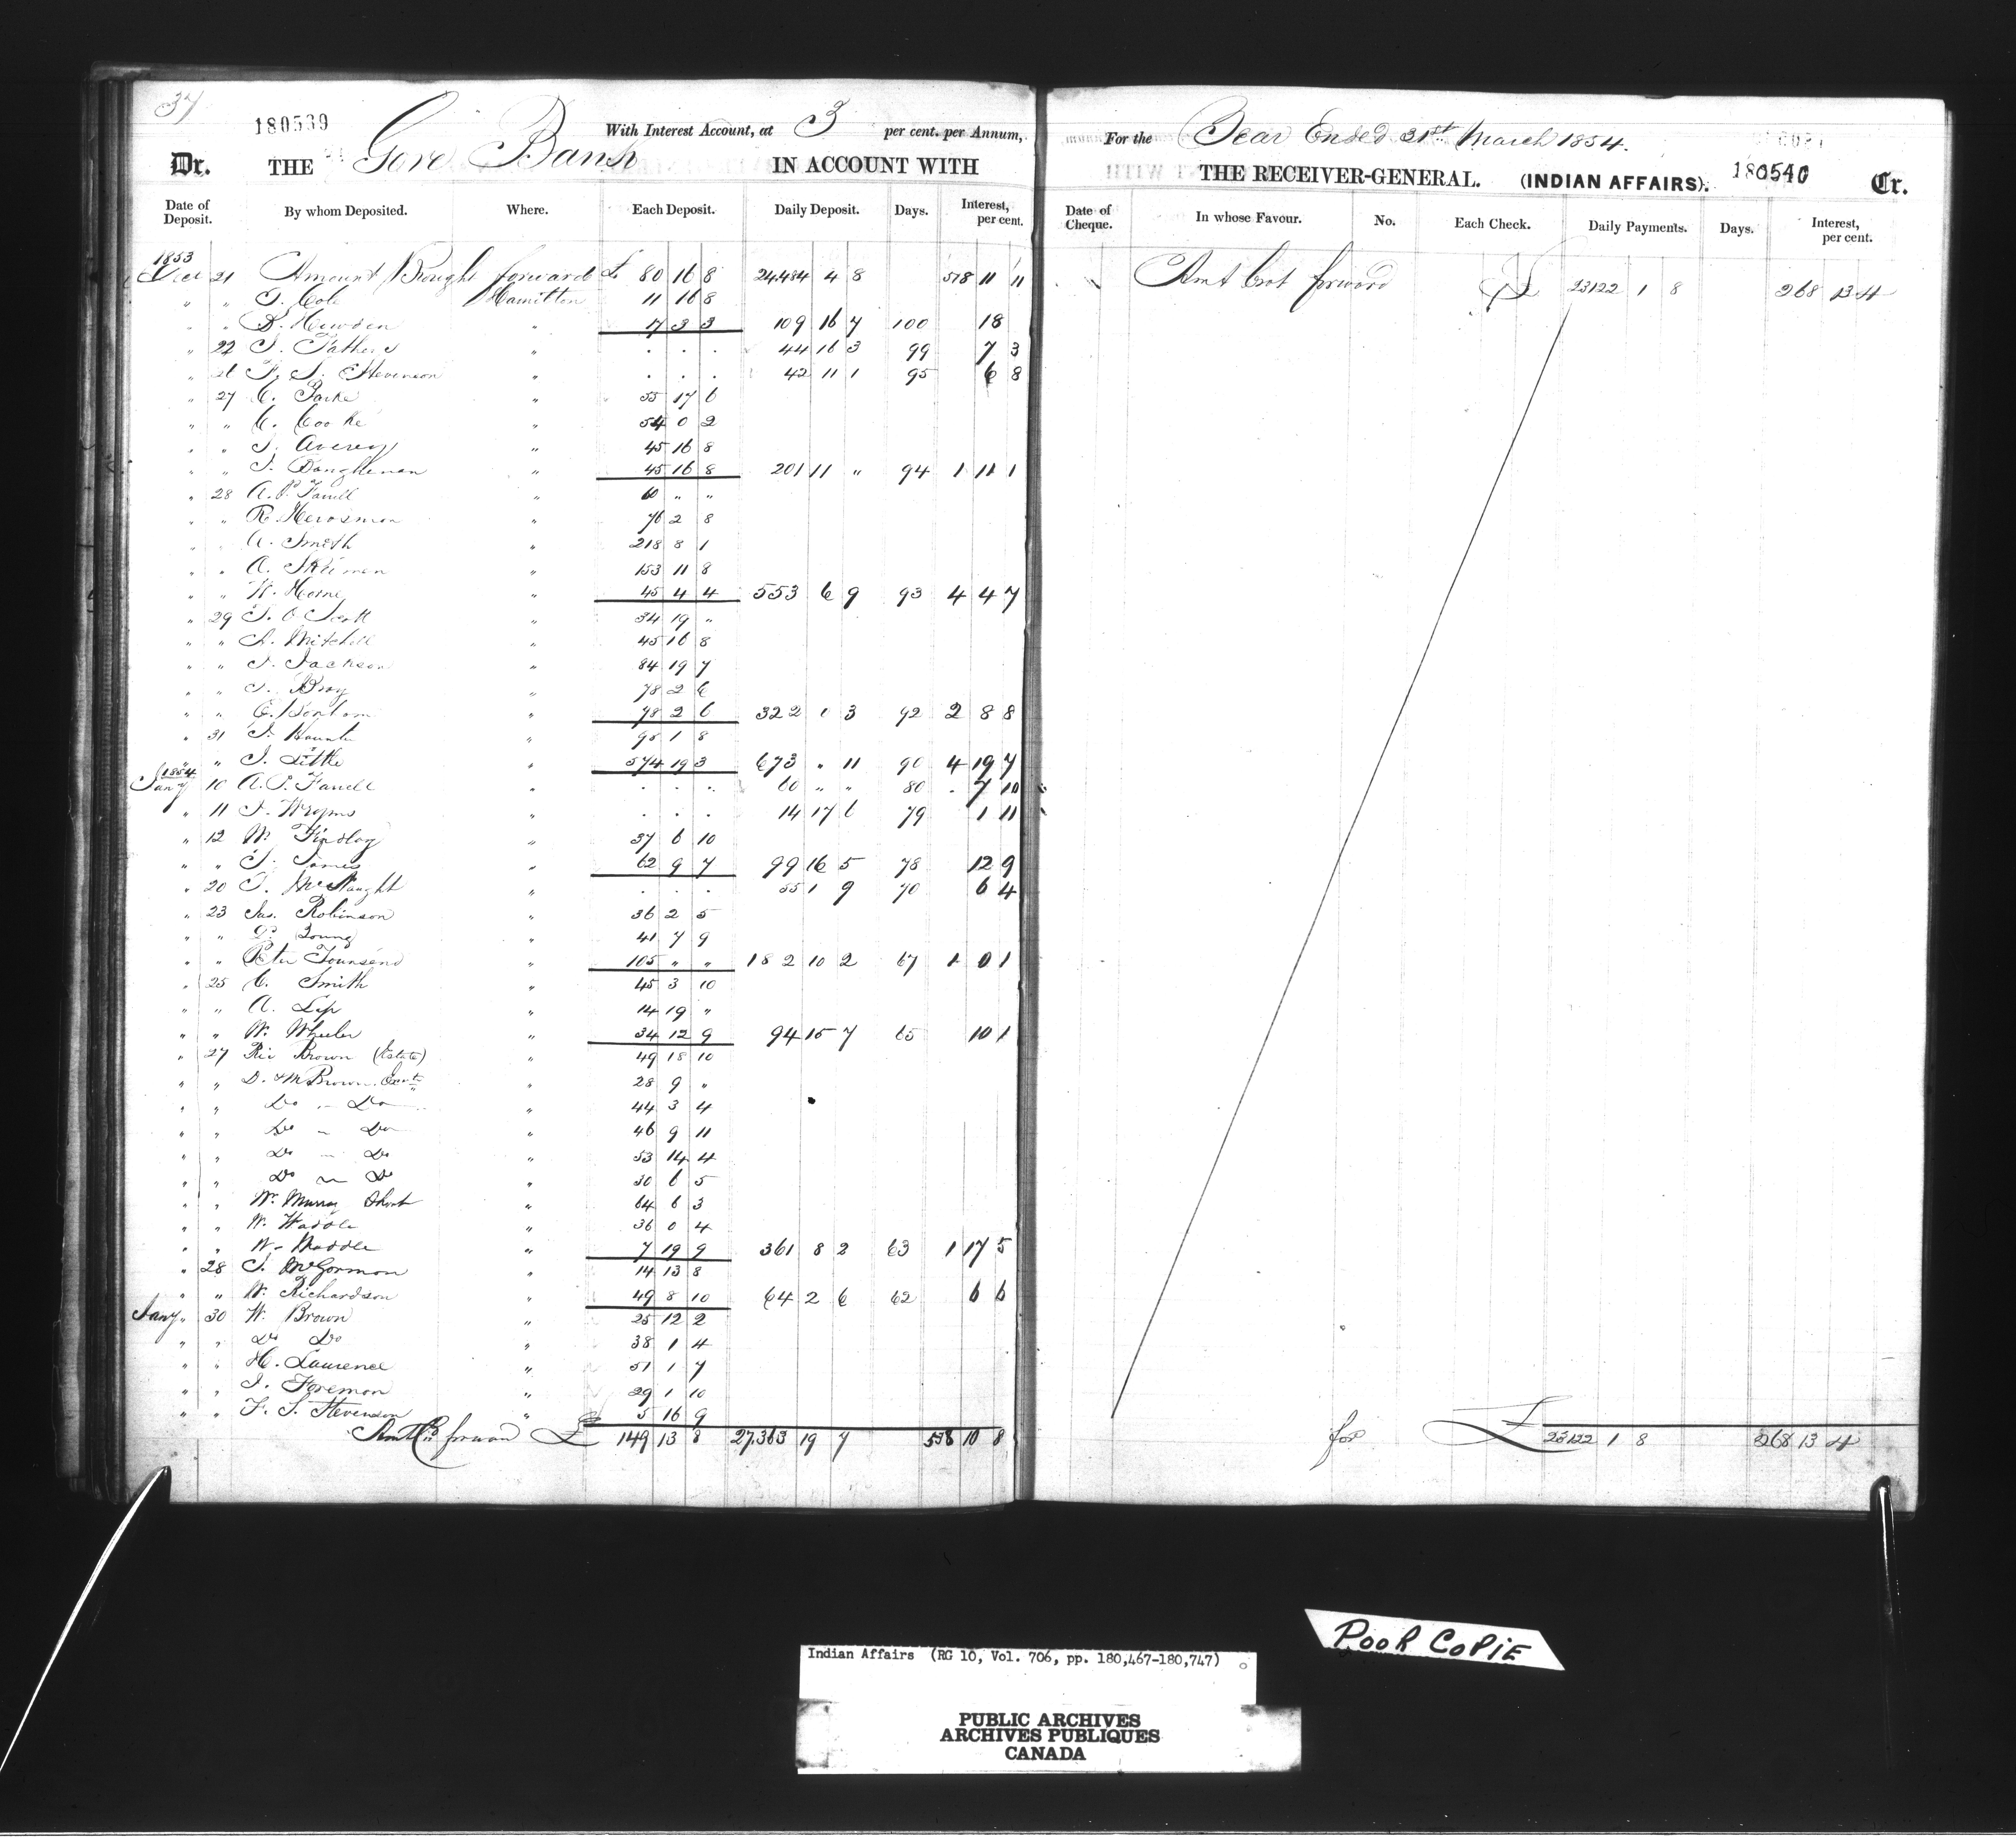 37
180539
With Interest Account, at 3 per cent. per Annum,
Dr. THE Gore Bank IN ACCOUNT WITH
Date of Deposit. By whom Deposited. Where. Each Deposit. Daily Deposit. Days. Interest, per cent.
1853
Dec 21 Amount Brought forward £ 80 16 8 24,484 4 8 518 11 11
" " J. Cole Hamilton 11 16 8
" " 17 3 3 109 16 7 100 18
" 22 " . . . 44 16 3 99 7 3
" 26 F. S. Stevenson " . . . 42 11 1 95 6 8
" 27 " 55 17 6
" " C. Cooke " 54 0 2
" " J. Averey " 45 16 8
" " " 45 16 8 201 11 " 94 1 11 1
" 28 A. P. Farrell " 60 " "
" " " 76 2 8
" " A. Smith " 218 8 1
" " " 153 11 8
" " W. Horne " 45 4 4 553 6 9 93 4 4 7
" 29 Scott " 34 19 "
" " A. Mitchell " 45 16 8
" " J. Jackson " 84 19 7
" " J. Bray " 78 2 6
" " " 78 2 6 322 1 3 92 2 8 8
" 31 " 95 1 8
" " J. Little " 574 19 3 673 " 11 90 4 19 7
1854
Jany 10 A. P. Farrell " . . . 60 " " 80 . 7 10
" 11 " . . . 14 17 6 79 1 11
" 12 W. Findlay " 37 6 10
" " J. James " 62 9 7 99 16 5 78 12 9
" 20 J. McNaught " . . . 55 1 9 70 6 4
" 23 Jas. Robinson " 36 2 5
" " Young " 41 7 9
" " Peter Townsend " 105 " " 182 10 2 67 1 0 1
" 25 C. Smith " 45 3 10
" " A. " 14 19 "
" " W. Wheeler " 34 12 9 94 15 7 65 10 1
" 27 Brown (Estate) " 49 18 10
" " D. & M Brown " 28 9 "
" " Do " Do " 44 3 4
" " Do " Do " 46 9 11
" " Do " Do " 53 14 4
" " Do " Do " 30 6 5
" " W. Murray " 64 6 3
" " W. Waddle " 36 0 4
" " W. Waddle " 7 19 9 361 8 2 63 1 17 5
" 28 J. McGormon " 14 13 8
" " W. Richardson " 49 8 10 64 2 6 62 6 6
Jany " 30 W. Brown " 25 12 2
" " Do Do " 38 1 4
" " H. Laurence " 51 1 7
" " J. Foremon " 29 1 10
" " F. S. Stevenson " 5 16 9
Amt forward £ 149 13 8 27,363 19 7 538 10 8
For the Year Ended 31st March 1854.
THE RECEIVER-GENERAL. (INDIAN AFFAIRS). 180540 Cr.
Date of Cheque. In whose Favour. No. Each Check. Daily Payments. Days. Interest, per cent.
Amt brot forward £ 23122 1 8 268 13 4
for £ 23122 1 8 268 13 4
POOR COPIE
Indian Affairs (RG 10, Vol. 706, pp. 180,467-180,747)
PUBLIC ARCHIVES
ARCHIVES PUBLIQUES
CANADA